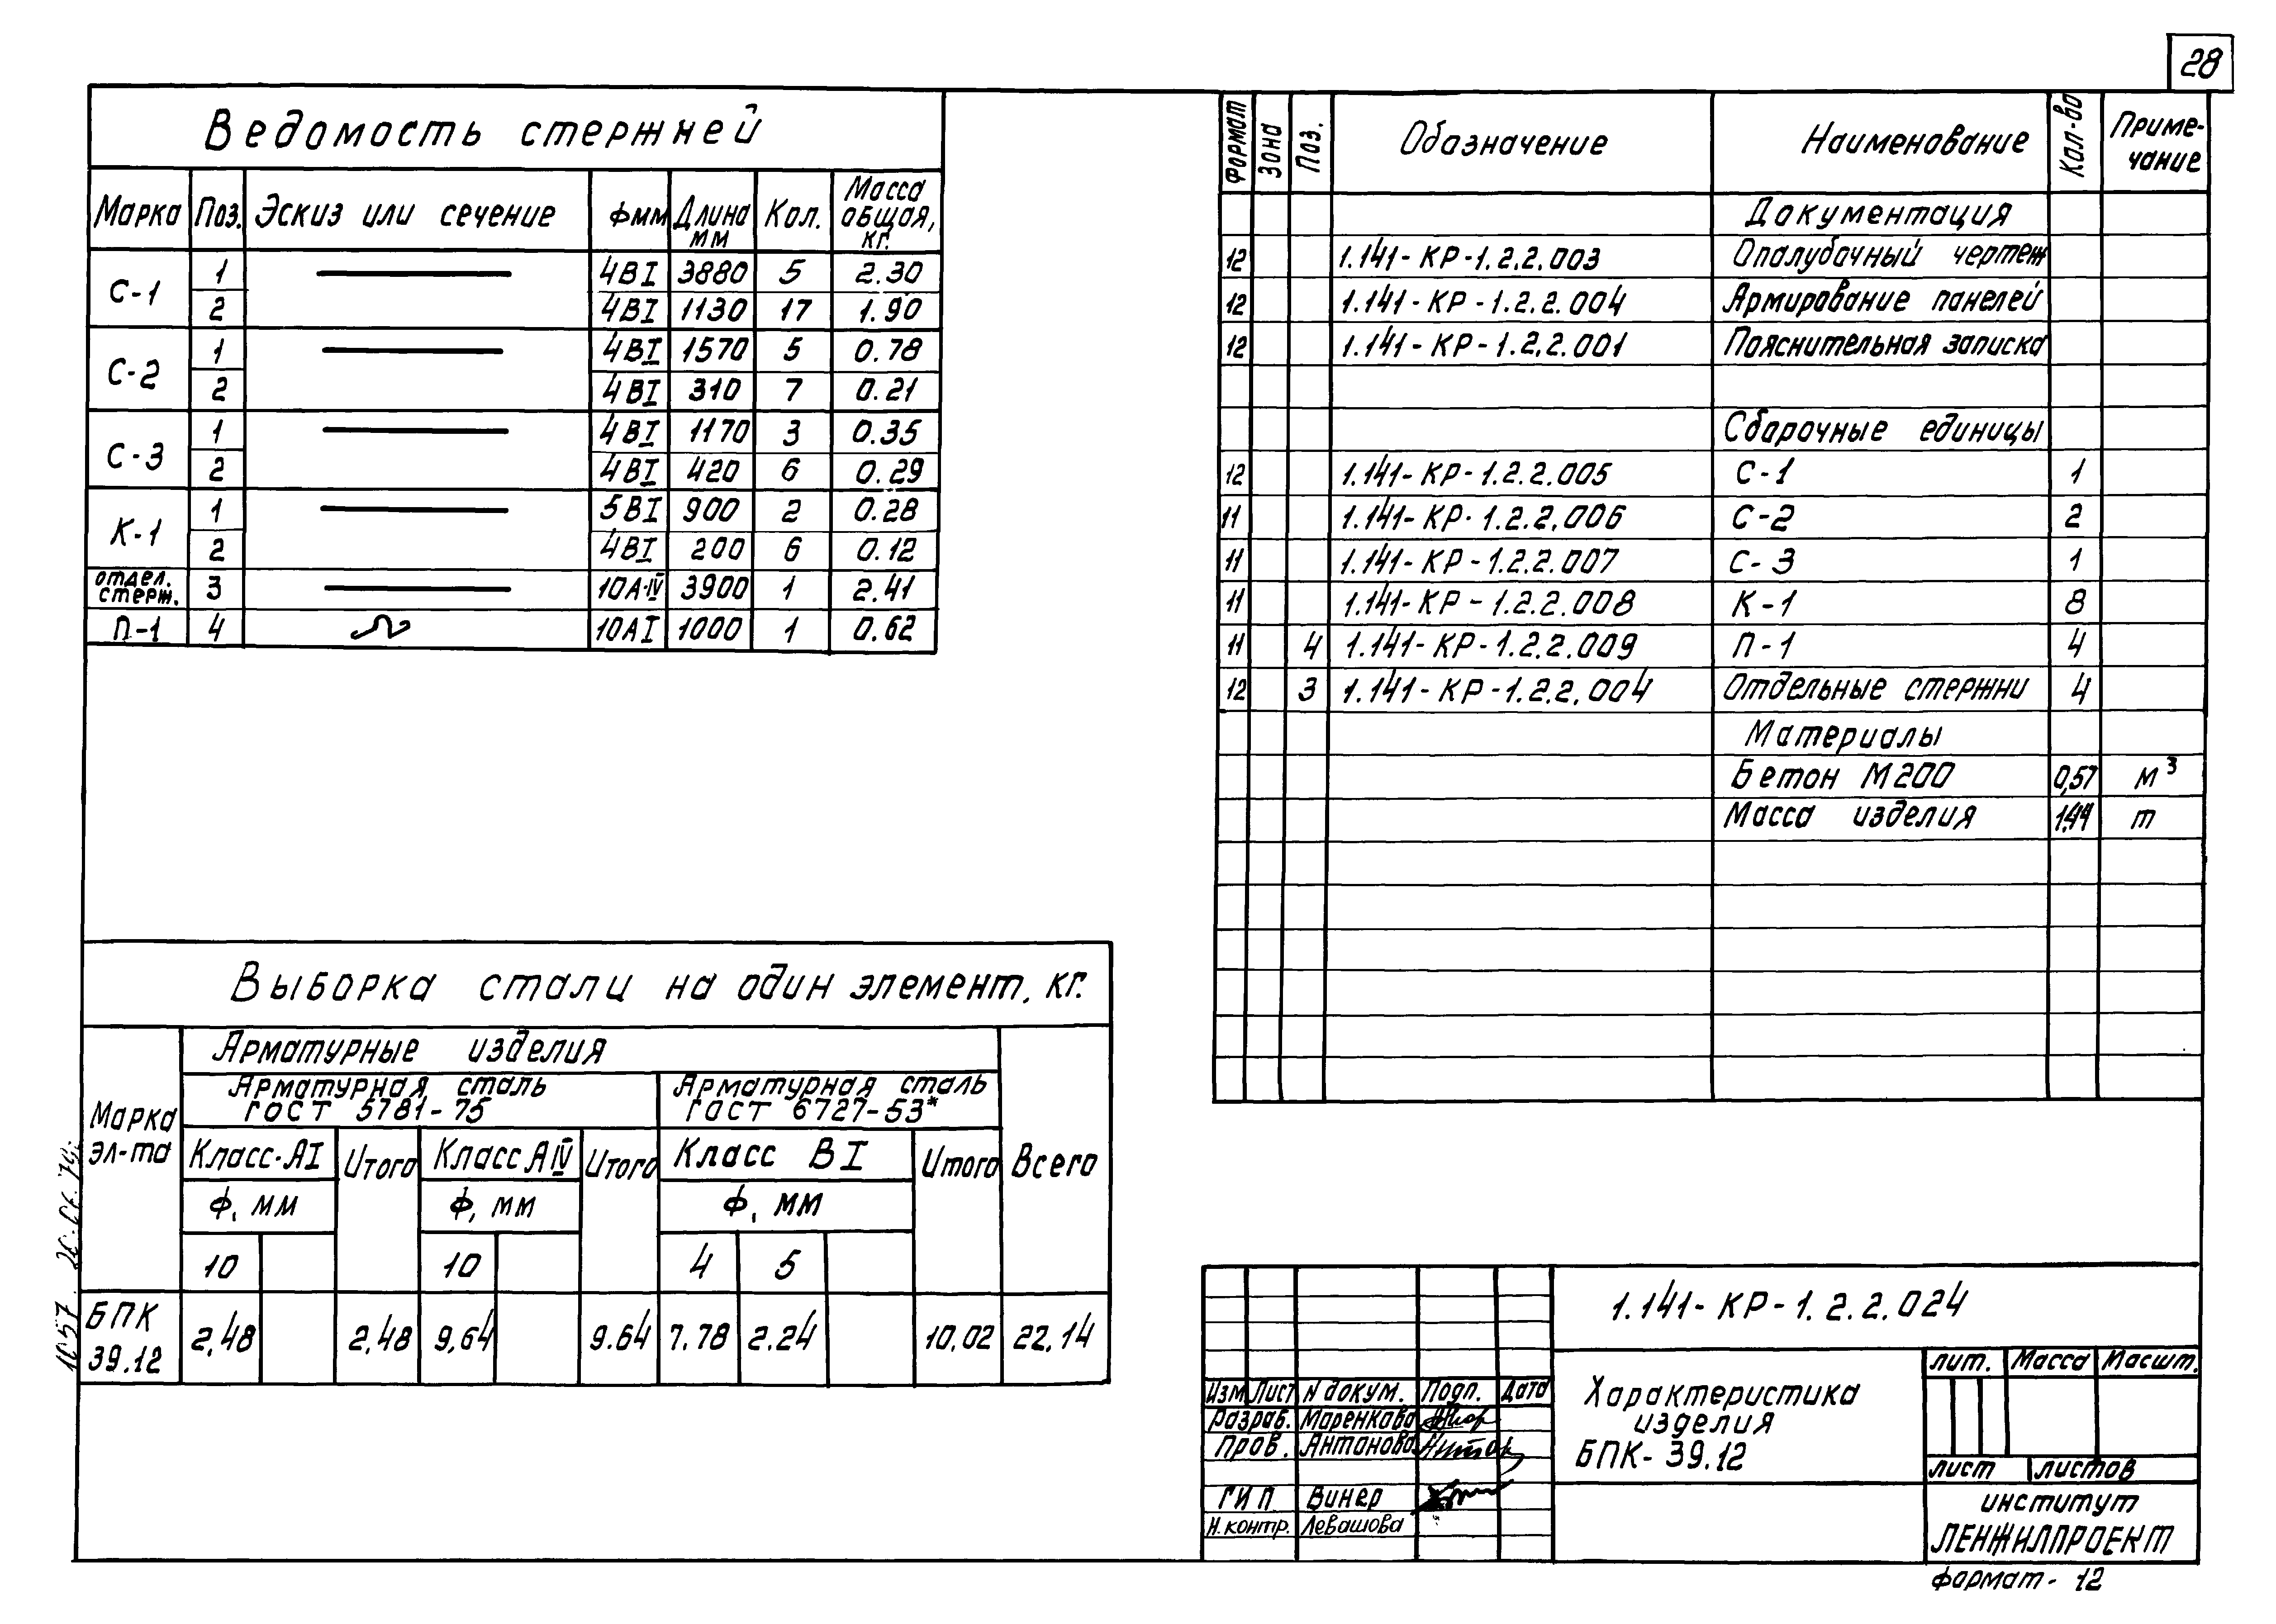 28
Ведомость стержней
Марка Поз. Эскиз или сечение Фмм Длина мм Кол. Масса общая, кг.
С-1 1 4ВI 3880 5 2.30
2 4ВI 1130 17 1.90
С-2 1 4ВI 1570 5 0.78
2 4ВI 310 7 0.21
С-3 1 4ВI 1170 3 0.35
2 4ВI 420 6 0.29
К-1 1 5ВI 900 2 0.28
2 4ВI 200 6 0.12
отдел. стерж. 3 10А-IV 3900 1 2.41
П-1 4 10АI 1000 1 0.62
Формат Зона Поз. Обозначение Наименование Кол-во Приме-
чание
Документация
12 1.141-КР-1.2.2.003 Опалубочный чертеж
12 1.141-КР-1.2.2.004 Армирование панелей
12 1.141-КР-1.2.2.001 Пояснительная записка
Сборочные единицы
12 1.141-КР-1.2.2.005 С-1 1
11 1.141-КР-1.2.2.006 С-2 2
11 1.141-КР-1.2.2.007 С-3 1
11 1.141-КР-1.2.2.008 К-1 8
11 4 1.141-КР-1.2.2.009 П-1 4
12 3 1.141-КР-1.2.2.004 Отдельные стержни 4
Материалы
Бетон М200 0,57 м³
Масса изделия 1,44 т
Выборка стали на один элемент, кг.
Марка эл-та Арматурные изделия Всего
Арматурная сталь ГОСТ 5781-75 Арматурная сталь ГОСТ 6727-53*
Класс-АI Итого Класс АIV Итого Класс ВI Итого
Ф, мм Ф, мм Ф, мм
10 10 4 5
БПК 39.12 2,48 2,48 9,64 9.64 7.78 2.24 10.02 22.14
1.141-КР-1.2.2.024
Изм Лист N докум. Подп. Дата
Разраб. Маренкова
Пров. Антонова
ГИП Винер
Н.контр. Левашова
Характеристика
изделия
БПК-39.12
Лит. Масса Масшт.
лист листов
институт
ЛЕНЖИЛПРОЕКТ
формат- 12
1057